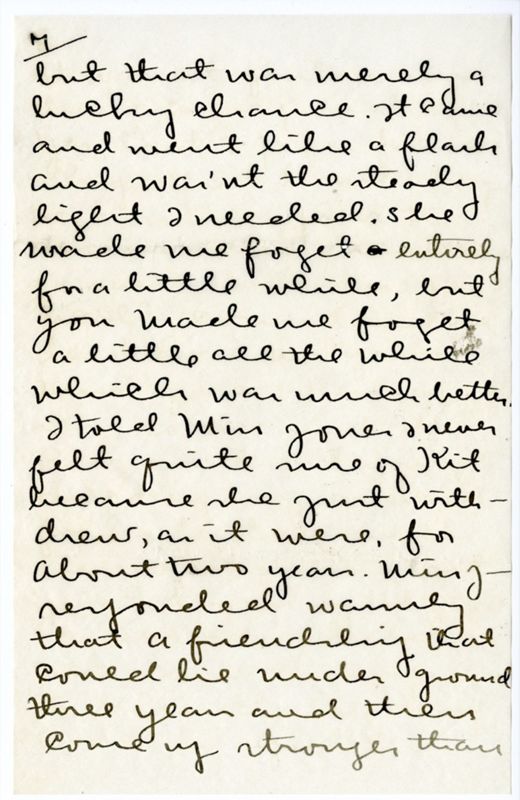 7
but that was merely a
lucky chance. It came
and went like a flash
and was'nt the steady
light I needed. She
made me foget entirely
for a little while, but
you made me foget
a little all the while
which was much better.
I told Miss Jones I never
felt quite sure of Kit
because she just with-
drew, as it were, for
about two years. Miss J-
responded warmly
that a friendship that
could lie under ground
three years and then
come up stronger than